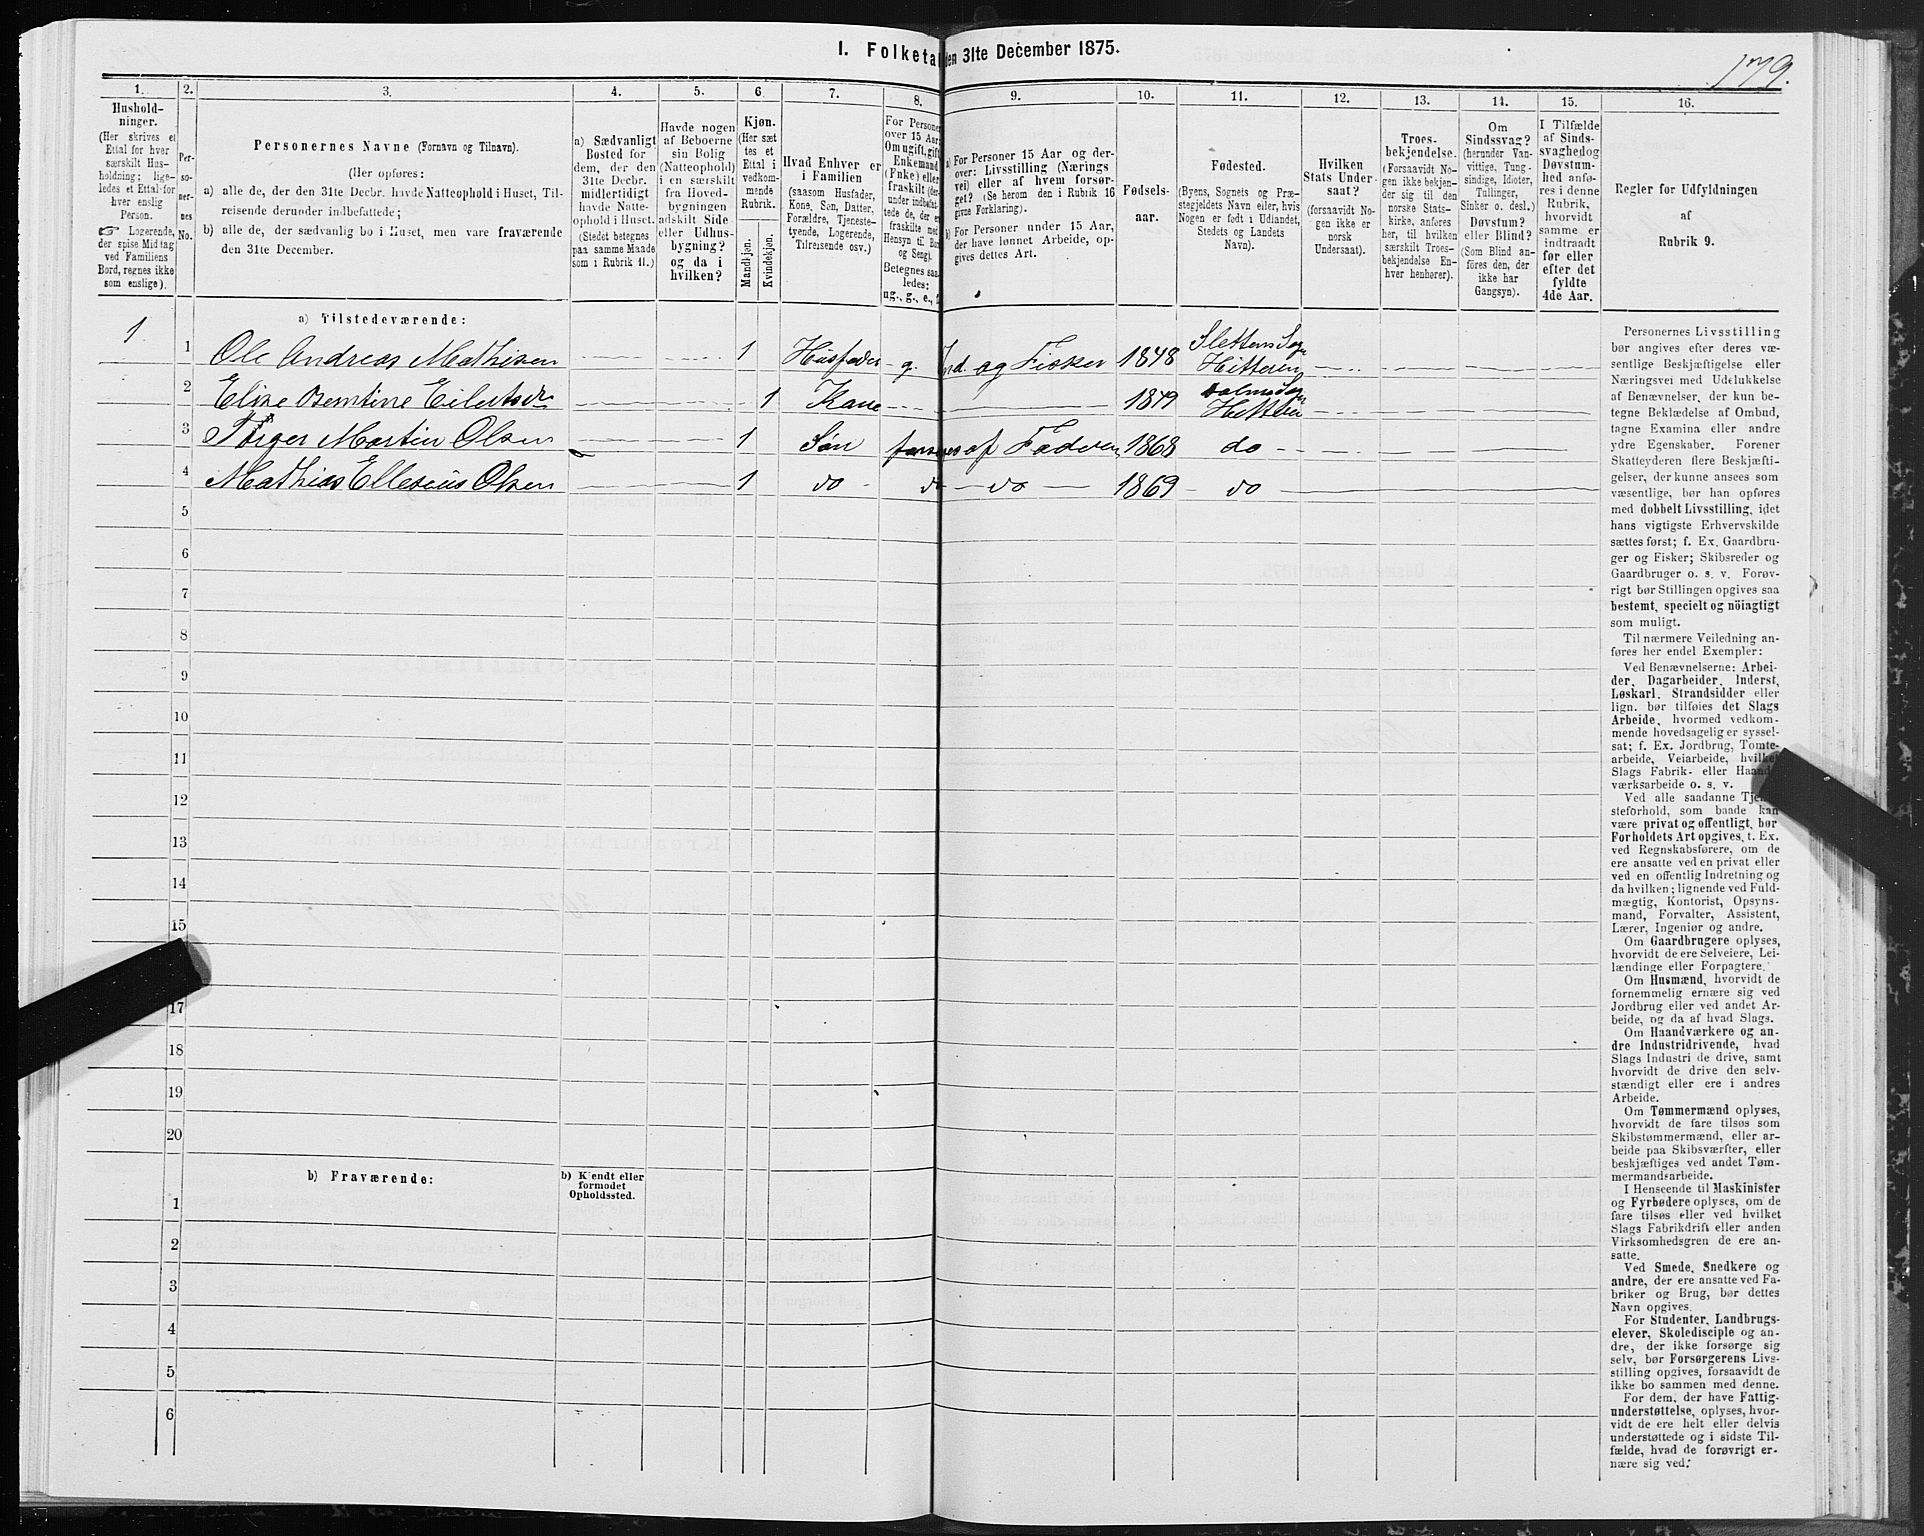 I. Folketal den 31te December 1875.
179.
1.
Hushold-
ninger.
(Her skrives et
Ettal for hver
særskilt Hus-
holdning; lige-
ledes et Ettal for
hver enslig
Person.
☞ Logerende,
der spise Middag
ved Familiens
Bord, regnes ikke
som enslige).
2.
Per-
so-
ner-
nes
No.
3.
Personernes Navne (Fornavn og Tilnavn).
(Her opføres:
a) alle de, der den 31te Decbr. havde Natteophold i Huset, Til-
reisende derunder indbefattede;
b) alle de, der sædvanlig bo i Huset, men vare fraværende
den 31te December.
4.
a) Sædvanligt
Bosted for
dem, der den
31te Decbr.
midlertidigt
havde Natte-
ophold i Huset.
(Stedet betegnes
paa samme Maade
som i Rubrik 11.)
5.
Havde nogen
af Beboerne
sin Bolig
(Natteophold)
i en særskilt
fra Hoved-
bygningen
adskilt Side-
eller Udhus-
bygning?
og da i
hvilken?
6.
Kjøn.
(Her sæt
tes et
Ettal i
vedkom-
mende
Rubrik.
Mandkjøn.
Kvindekjøn.
7.
Hvad Enhver er
i Familien
(saasom Husfader,
Kone, Søn, Datter,
Forældre, Tjeneste-
tyende, Logerende,
Tilreisende osv.)
8.
For Personer
over 15 Aar:
Om ugift, gift,
Enkemand
(Enke) eller
fraskilt (der-
under indbefat-
tede de, der er
fraskilte med
Hensyn til Bord
og Seng).
Betegnes saa-
ledes:
ug., g., e., f.
9.
a) For Personer 15 Aar og der-
over: Livsstilling (Nærings
vei) eller af hvem forsør-
get? (Se herom den i Rubrik 16
givne Forklaring).
b) For Personer under 15 Aar,
der have lønnet Arbeide, op-
gives dettes Art.
10.
Fødsels-
aar.
11.
Fødested.
(Byens, Sognets og Præ-
stegjeldets Navn eller, hvis
Nogen er født i Udlandet,
Stedets og Landets
Navn).
12.
Hvilken
Stats Under-
saat?
(forsaavidt No-
gen ikke er
norsk
Undersaat).
13.
Troes-
bekjendelse.
(Forsaavidt No-
gen ikke bekjen-
der sig til den
norske Stats-
kirke, anføres
her, til hvilken
særskilt Troes-
bekjendelse En-
hver henhører).
14.
Om
Sindssvag?
(herunder Van-
vittige, Tung-
sindige, Idioter,
Tullinger,
Sinker o. desl.)
Døvstum?
eller Blind?
(Som Blind an-
føres den, der
ikke har
Gangsyn).
15.
I Tilfælde
af Sinds-
svaghed og
Døvstum-
hed anfø-
res i denne
Rubrik,
hvorvidt
samme er
indtraadt
før eller
efter det
fyldte
4de Aar.
16.
Regler for Udfyldningen
af
Rubrik 9.
a) Tilstedeværende:
1 1 Ole Andreas Mathisen 1 Husfader g. Ind. og Fisker 1848 Slettens Sogn Hitteren
2 Elise Bemtine Eilertsdr 1 Kone 1849 Dolms Sogn Hitteren
3 Torger Martin Olsen 1 Søn forsørges af Faderen 1868 do
4 Mathias Ellesius Olsen 1 do do do 1869 do
5
6
7
8
9
10
11
12
13
14
15
17
18
19
20
b) Fraværende:
b) Kjendt eller
formodet
Opholdssted.
1
2
3
4
5
6
Personernes Livsstilling
bør angives efter deres væ-
sentlige Beskjæftigelse eller
Næringsvei med Udelukkelse
af Benævnelser, der kun be-
tegne Beklædelse af Ombud,
tagne Examina eller andre
ydre Egenskaber. Forener
Skatteyderen flere Beskjæfti-
gelser, der kunne ansees som
væsentlige, bør han opføres
med dobbelt Livsstilling, idet
hans vigtigste Erhvervskilde
sættes først; f. Ex. Gaardbru-
ger og Fisker; Skibsreder og
Gaardbruger o. s. v. Forøv-
rigt bør Stillingen opgives saa
bestemt, specielt og nöiagtigt
som muligt.
Til nærmere Veiledning an-
føres her endel Exempler:
Ved Benævnelserne: Arbei-
der, Dagarbeider, Inderst,
Løskarl, Strandsidder eller
lign. bør tilføies det Slags
Arbeide, hvormed vedkom-
mende hovedsagelig er syssel-
sat; f. Ex. Jordbrug, Tomte-
arbeide, Veiarbeide, hvilket
Slags Fabrik- eller Haand-
værksarbeide o. s. v.
Ved alle saadanne Tjene-
steforhold, som baade kan
være privat og offentligt, bør
Forholdets Art opgives, t. Ex.
ved Regnskabsførere, om de
ere ansatte ved en privat eller
ved en offentlig Indretning og
da hvilken; lignende ved Fuld-
mægtig, Kontorist, Opsyns-
mand, Forvalter, Assistent,
Lærer, Ingeniør og andre.
Om Gaardbrugere oplyses,
hvorvidt de ere Selveiere, Lei-
lændinge eller Forpagtere.
Om Husmænd, hvorvidt de
fornemmelig ernære sig ved
Jordbrug eller ved andet Ar-
beide, og da af hvad Slags.
Om Haandværkere og an-
dre Industridrivende, hvad
Slags Industri de drive, samt
hvorvidt de drive den selv-
stændigt eller ere i andres
Arbeide.
Om Tømmermænd oplyses,
hvorvidt de fare tilsøs som
Skibstømmermænd, eller ar-
beide paa Skibsværfter, eller
beskjæftiges ved andet Tøm-
mermandsarbeide.
I Henseende til Maskinister
og Fyrbødere oplyses, om de
fare tilsøs eller ved hvilket
Slags Fabrikdrift eller anden
Virksomhedsgren de ere an-
satte.
Ved Smede, Snedkere og
andre, der ere ansatte ved Fa-
briker og Brug, bør dettes
Navn opgives.
For Studenter, Landbrugs-
elever, Skoledisciple og an-
dre, der ikke forsørge sig
selv, bør Forsørgerens Livs-
stilling opgives, forsaavidt de
ikke bo sammen med denne.
For dem, der have Fattig-
understøttelse, oplyses, hvor-
vidt de ere helt eller delvis
understøttede og i sidste Til-
fælde, hvad de forøvrigt er-
nære sig ved.